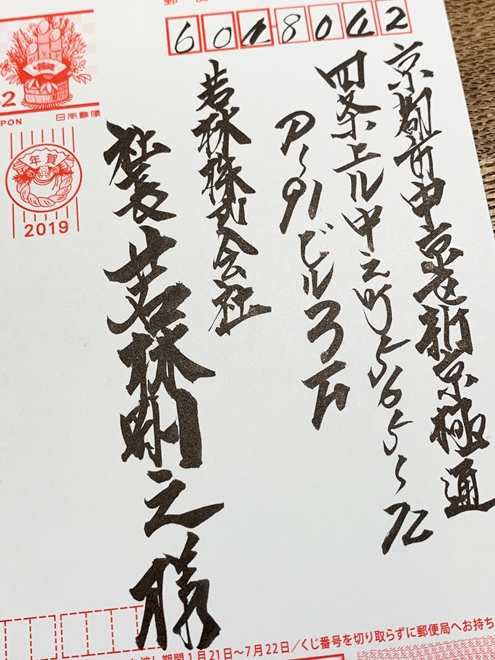 6048042
京都市中京区新京極通
四条上ル中之町565-72
P-91ビル3F
若林株式会社
社長 若林剛之様
日本郵便
年賀
2019
1月21日～7月22日／くじ番号を切り取らずに郵便局へお持ち